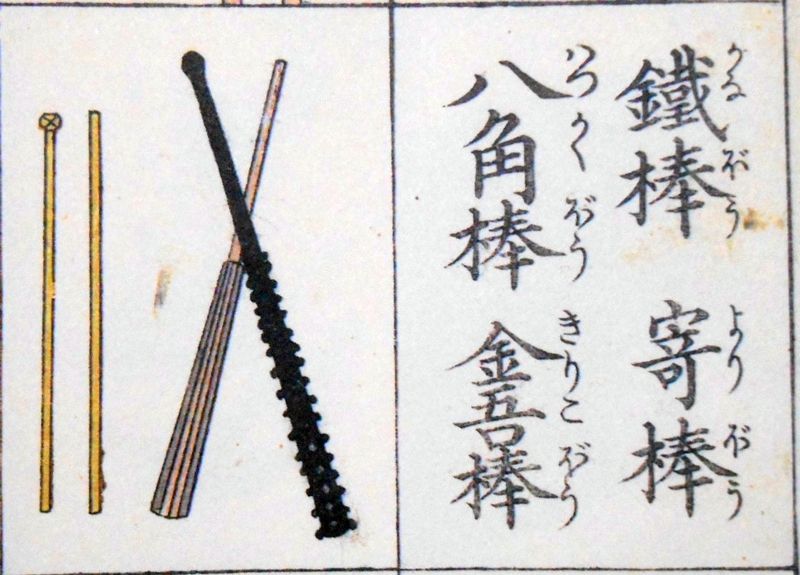 鐵棒 寄棒
かなぼう よりぼう
八角棒 金吾棒
はつかくぼう きりこぼう